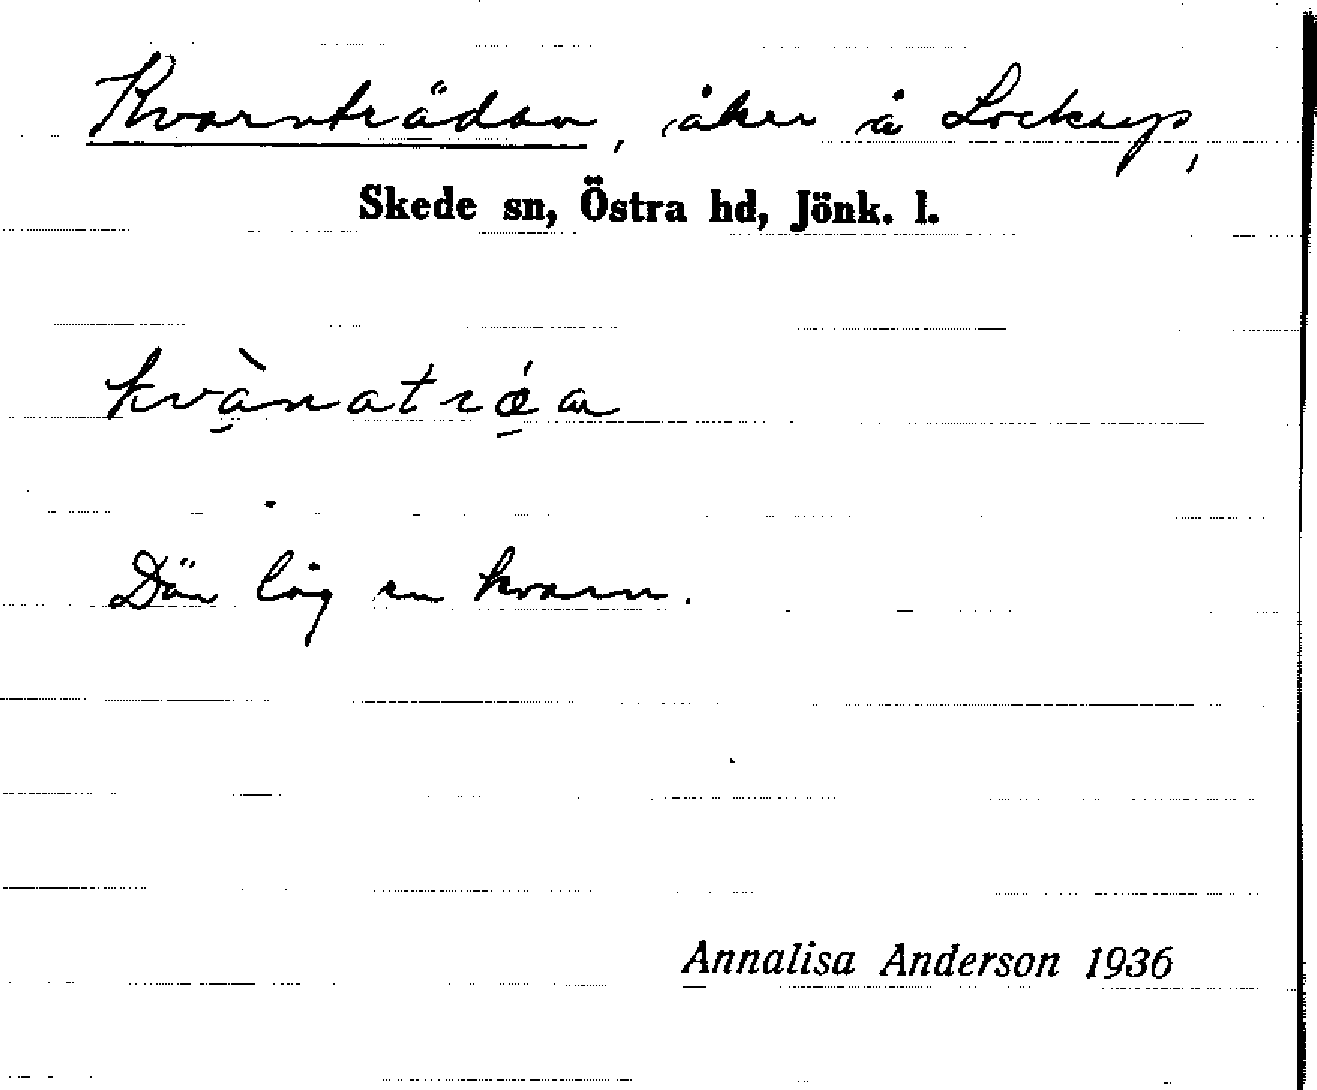 Kvarnträdan, åker å Lockarp,
Skede sn, Östra hd, Jönk. l.
kvànatrǿan
Där låg en kvarn.
Annalisa Anderson 1936